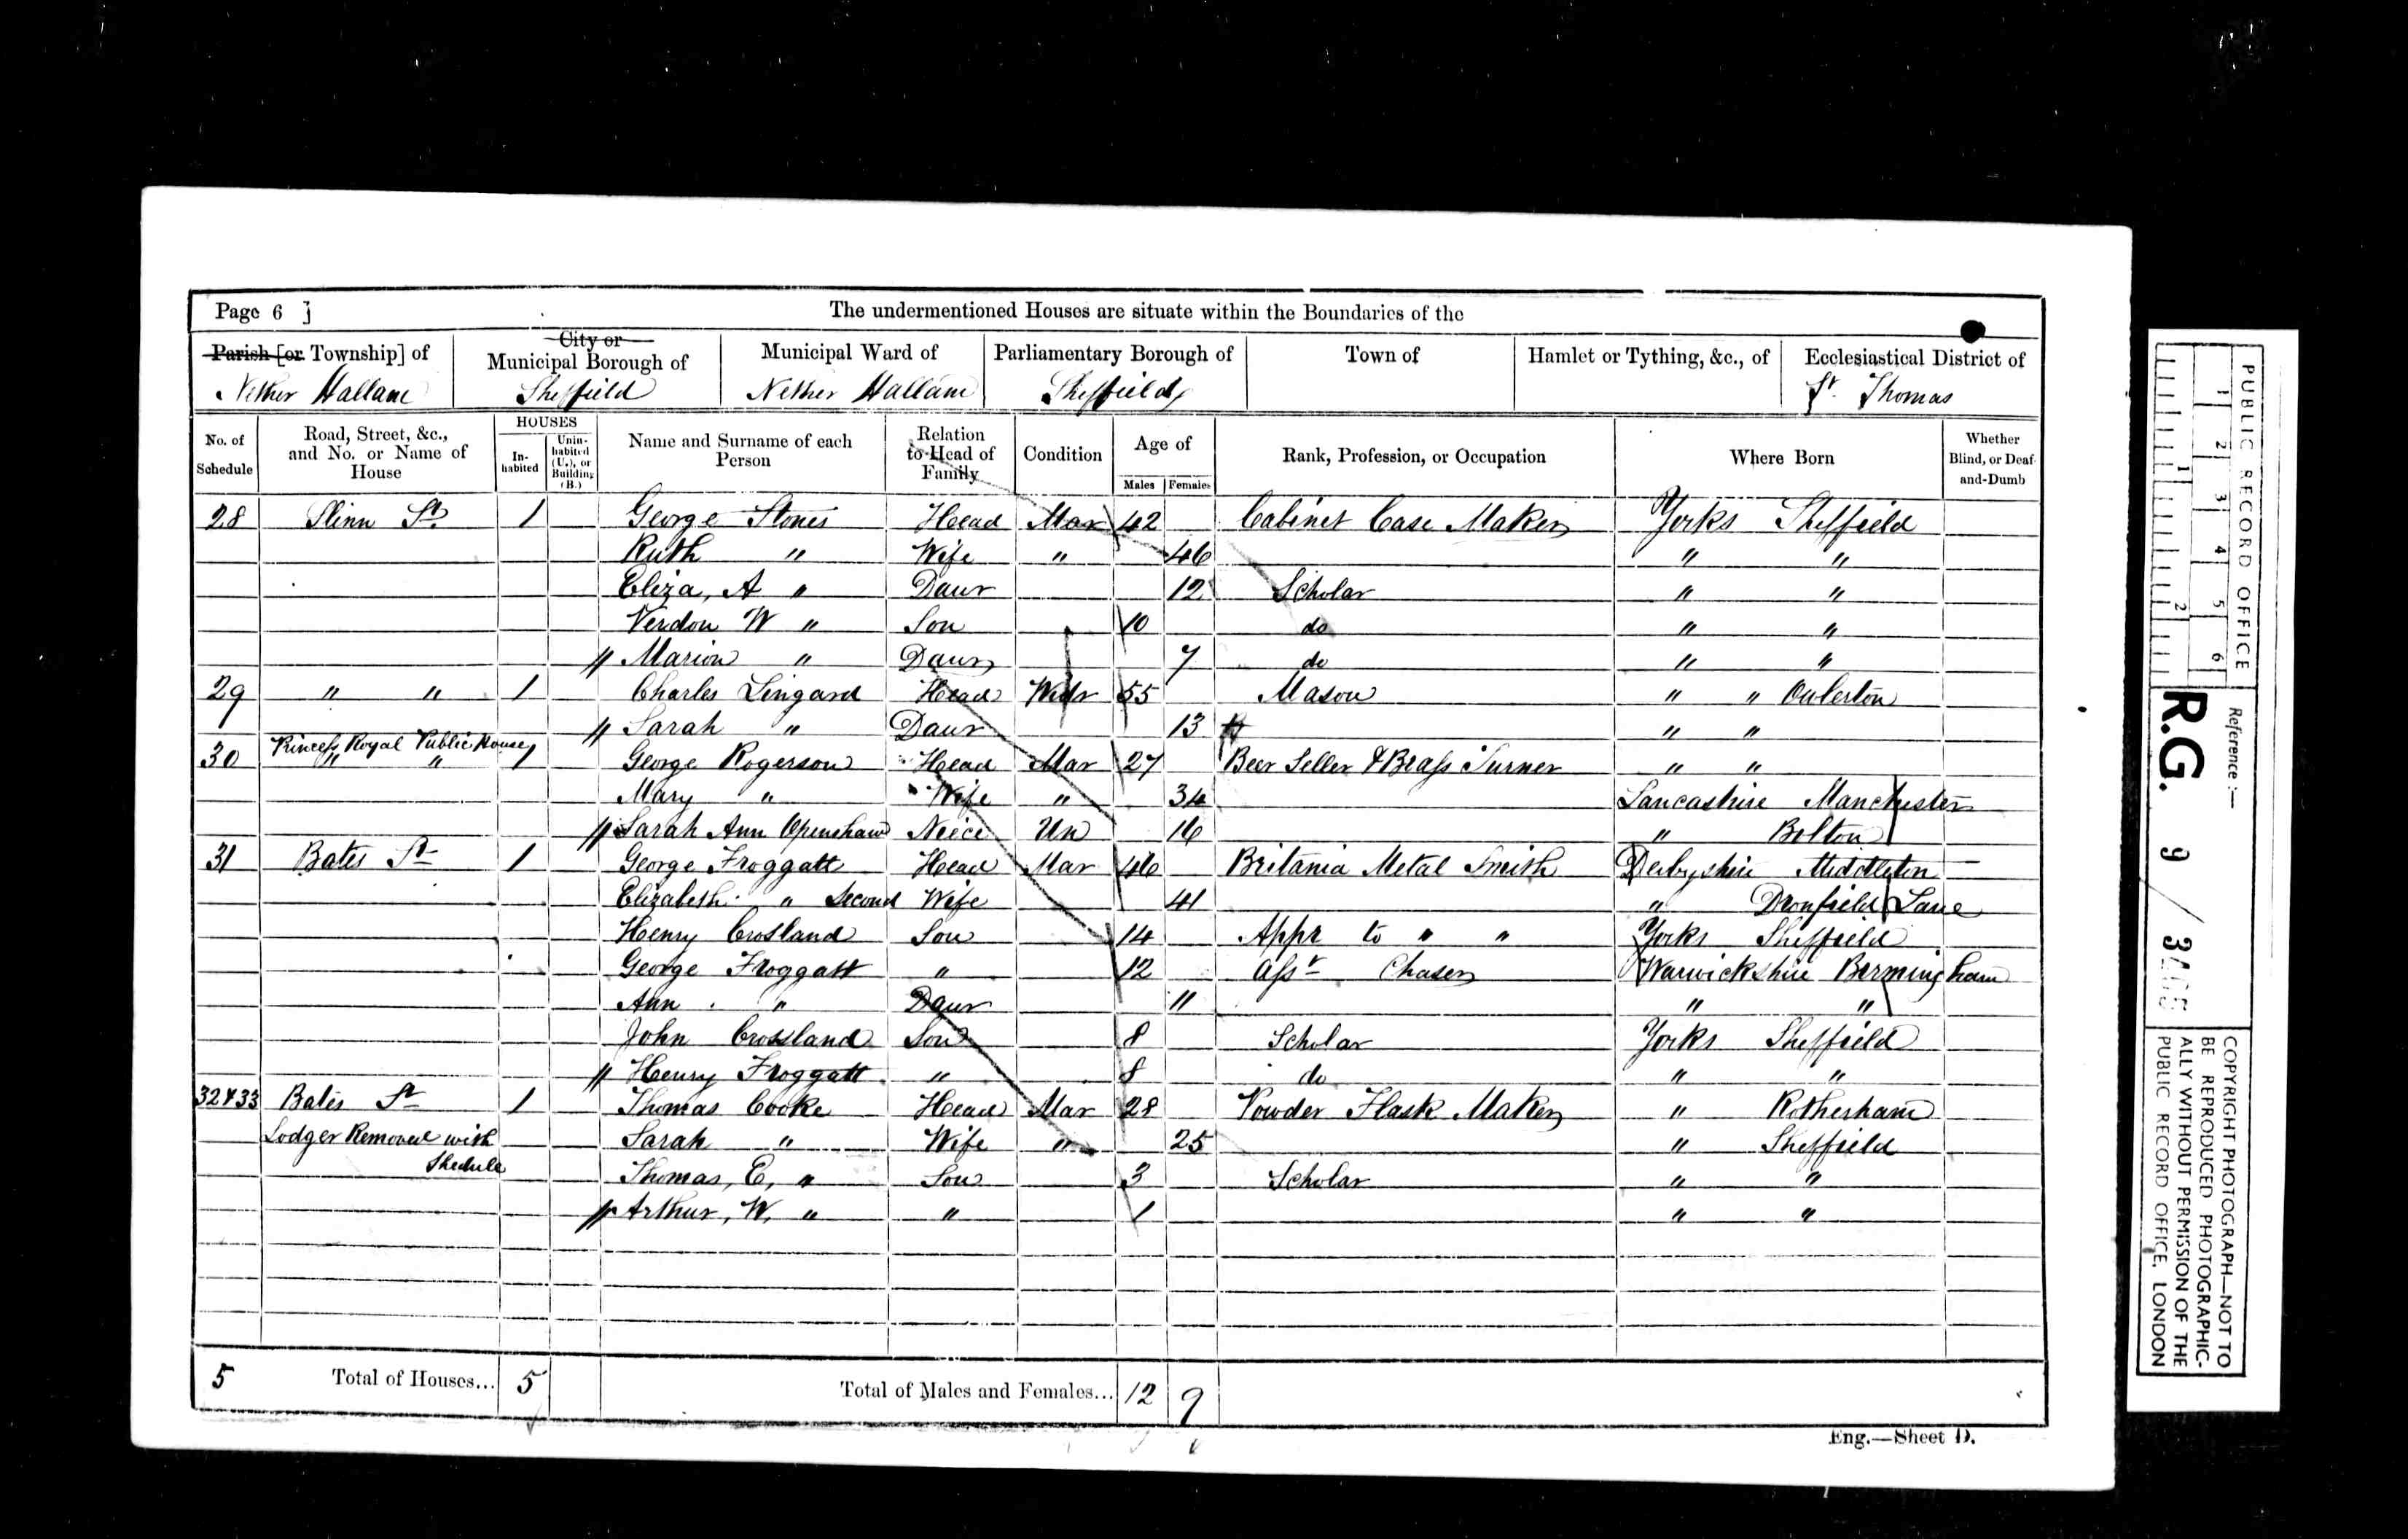 Page 6 ]
The undermentioned Houses are situate within the Boundaries of the
Parish [or Township] of
Nether Hallam
City or
Municipal Borough of
Sheffield
Municipal Ward of
Nether Hallam
Parliamentary Borough of
Sheffield
Town of
Hamlet or Tything, &c., of
Ecclesiastical District of
St. Thomas
No. of Schedule
Road, Street, &c., and No. or Name of House
HOUSES
In-habited
Unin-habited (U.), or Building (B.)
Name and Surname of each Person
Relation to Head of Family
Condition
Age of
Males
Females
Rank, Profession, or Occupation
Where Born
Whether Blind, or Deaf-and-Dumb
28 Flinn St 1 George Stones Head Mar 42 Cabinet Case Maker Yorks Sheffield
Ruth " Wife " 46 " "
Eliza, A " Daur 12 Scholar " "
Verdon W " Son 10 do " "
Marion " Daur 7 do " "
29 " " 1 Charles Lingard Head Widr 55 Mason " " Owlerton
Sarah " Daur 13 " "
Princess Royal Public House
30 " " 1 George Rogerson Head Mar 27 Beer Seller & Brass Turner " "
Mary " Wife " 34 Lancashire Manchester
Sarah Ann Openshaw Neice Un 16 " Bolton
31 Bates St 1 George Froggatt Head Mar 46 Britania Metal Smith Derbyshire Middleton
Elizabeth " Second Wife 41 " Dronfield Lane
Henry Crosland Son 14 Appr to " " Yorks Sheffield
George Froggatt " 12 Asst Chaser Warwickshire Birmingham
Ann " Daur 11 " "
John Crossland Son 8 Scholar Yorks Sheffield
Henry Froggatt " 8 do " "
32 & 33 Bates St 1 Thomas Cooke Head Mar 28 Powder Flask Maker " Rotherham
Lodger Removed with Sarah " Wife " 25 " Sheffield
Shedule
Thomas, E, " Son 3 Scholar " "
Arthur, W, " " 1 " "
5 Total of Houses... 5 Total of Males and Females... 12 9
Eng.—Sheet D.
PUBLIC RECORD OFFICE
1 2 3 4 5 6
1 2
Reference :—
R.G. 9 /
COPYRIGHT PHOTOGRAPH—NOT TO
BE REPRODUCED PHOTOGRAPHIC-
ALLY WITHOUT PERMISSION OF THE
PUBLIC RECORD OFFICE, LONDON